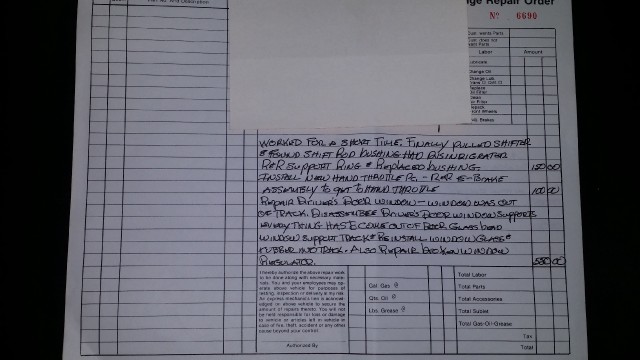 ge Repair Order
Nº 6690
Labor Amount
Change Oil
Front Wheels
WORKED FOR A SHORT TIME. FINALLY PULLED SHIFTER
& FOUND SHIFT ROD BUSHING HAD DISINIGRATED
R&R SUPPORT RING & REPLACED BUSHING. 150 00
INSTALL NEW HAND THROTTLE - R&R E-BRAKE
ASSEMBLY TO GET TO HAND THROTTLE 100 00
REPAIR DRIVER'S DOOR WINDOW - WINDOW WAS OUT
OF TRACK. DISASSEMBLE DRIVER'S DOOR WINDOW SUPPORTS
EVERYTHING HAS TO COME OUT OF DOOR GLASS
WINDOW SUPPORT TRACK & REINSTALL WINDOW GLASS &
RUBBER INTO TRACK. ALSO REPAIR BROKEN WINDOW
REGULATOR. 550 00
I hereby authorize the above repair work
to be done along with necessary mate-
rials. You and your employees may op-
erate above vehicle for purposes of
testing, inspection or delivery at my risk.
An express mechanics lien is acknowl-
edged on above vehicle to secure the
amount of repairs thereto. You will not
be held responsible for loss or damage
to vehicle or articles left in vehicle in
case of fire, theft, accident or any other
cause beyond your control.
Authorized By
Gal. Gas @
Qts. Oil @
Lbs. Grease @
Total Labor
Total Parts
Total Accessories
Total Sublet
Total Gas-Oil-Grease
Tax
Total